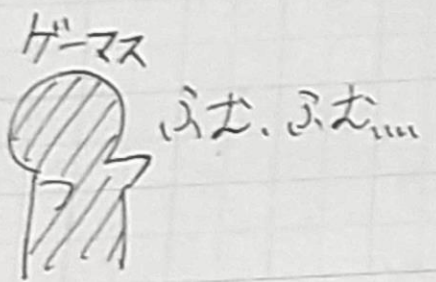 ゲーマス
ふむ、ふむ....